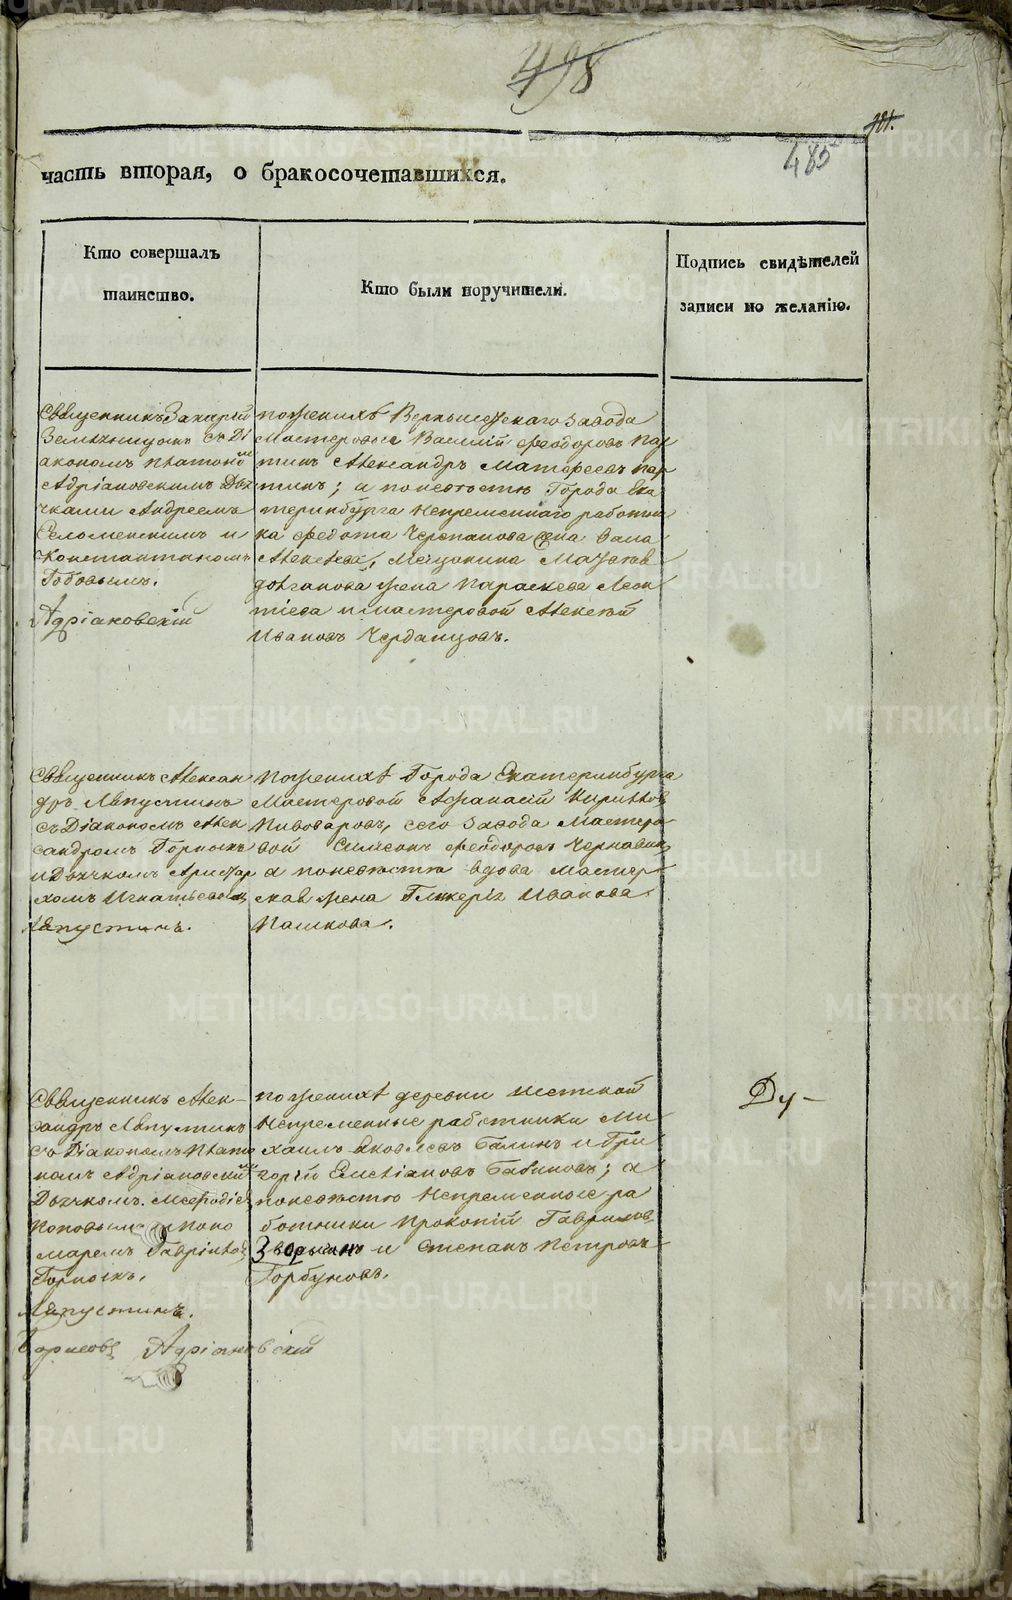 498
481.
485
часть вторая, о бракосочетавшихся.
Кто совершалъ
таинство.
Кто были поручители.
Подпись свидѣтелей
записи по желанію.
Священникъ Захарій
Земляницынъ съ Ді
акономъ Платоно
Адріановскимъ Дья
чками Андреемъ
и
Константиномъ
Адріановскій
по женихѣ Верхъ завода
Мастеровые Василій Феодоровъ Пар
тинъ Александръ Матвеевъ Пар
тинъ; а по невѣстѣ Города Ека
теринбурга Непременнаго работни
ка Федота Черепанова жена Анна
Алексѣева, Мещанина
жена Параскева Леон
тіева и мастеровой Алексѣй
Ивановъ Черданцовъ.
Священникъ Алексан
дръ Ляпустинъ
съ Діакономъ Алек
сандромъ Горныхъ
и Дьячкомъ Аристар
хомъ Игнатьевымъ
Ляпустинъ.
По женихѣ Города Екатеринбурга
Мастеровой Афанасій Кириловъ
Пивоваровъ, сего Завода Мастеро
вой Симеонъ Феодоровъ Чернавинъ
а по невѣстѣ вдова мастер
ская жена Гликерія Иванова
Пашкова.
Священникъ Алек-
сандръ Ляпустинъ
съ Діакономъ Плато
номъ Адріановскимъ
Дьячкомъ Мефодіемъ
Поповымъ и Поно
маремъ Гавріиломъ
Горныхъ.
Ляпустинъ.
Адріановскій
по женихѣ деревни
Непременные работники Ми
хаилъ Яковлевъ Балинъ и Гри
горій Емеліановъ Бабиновъ; а
по невѣстѣ Непременные ра
ботники Прокопій Гавриловъ
и Степанъ Петровъ
Горбуновъ.
METRIKI.GASO-URAL.RU